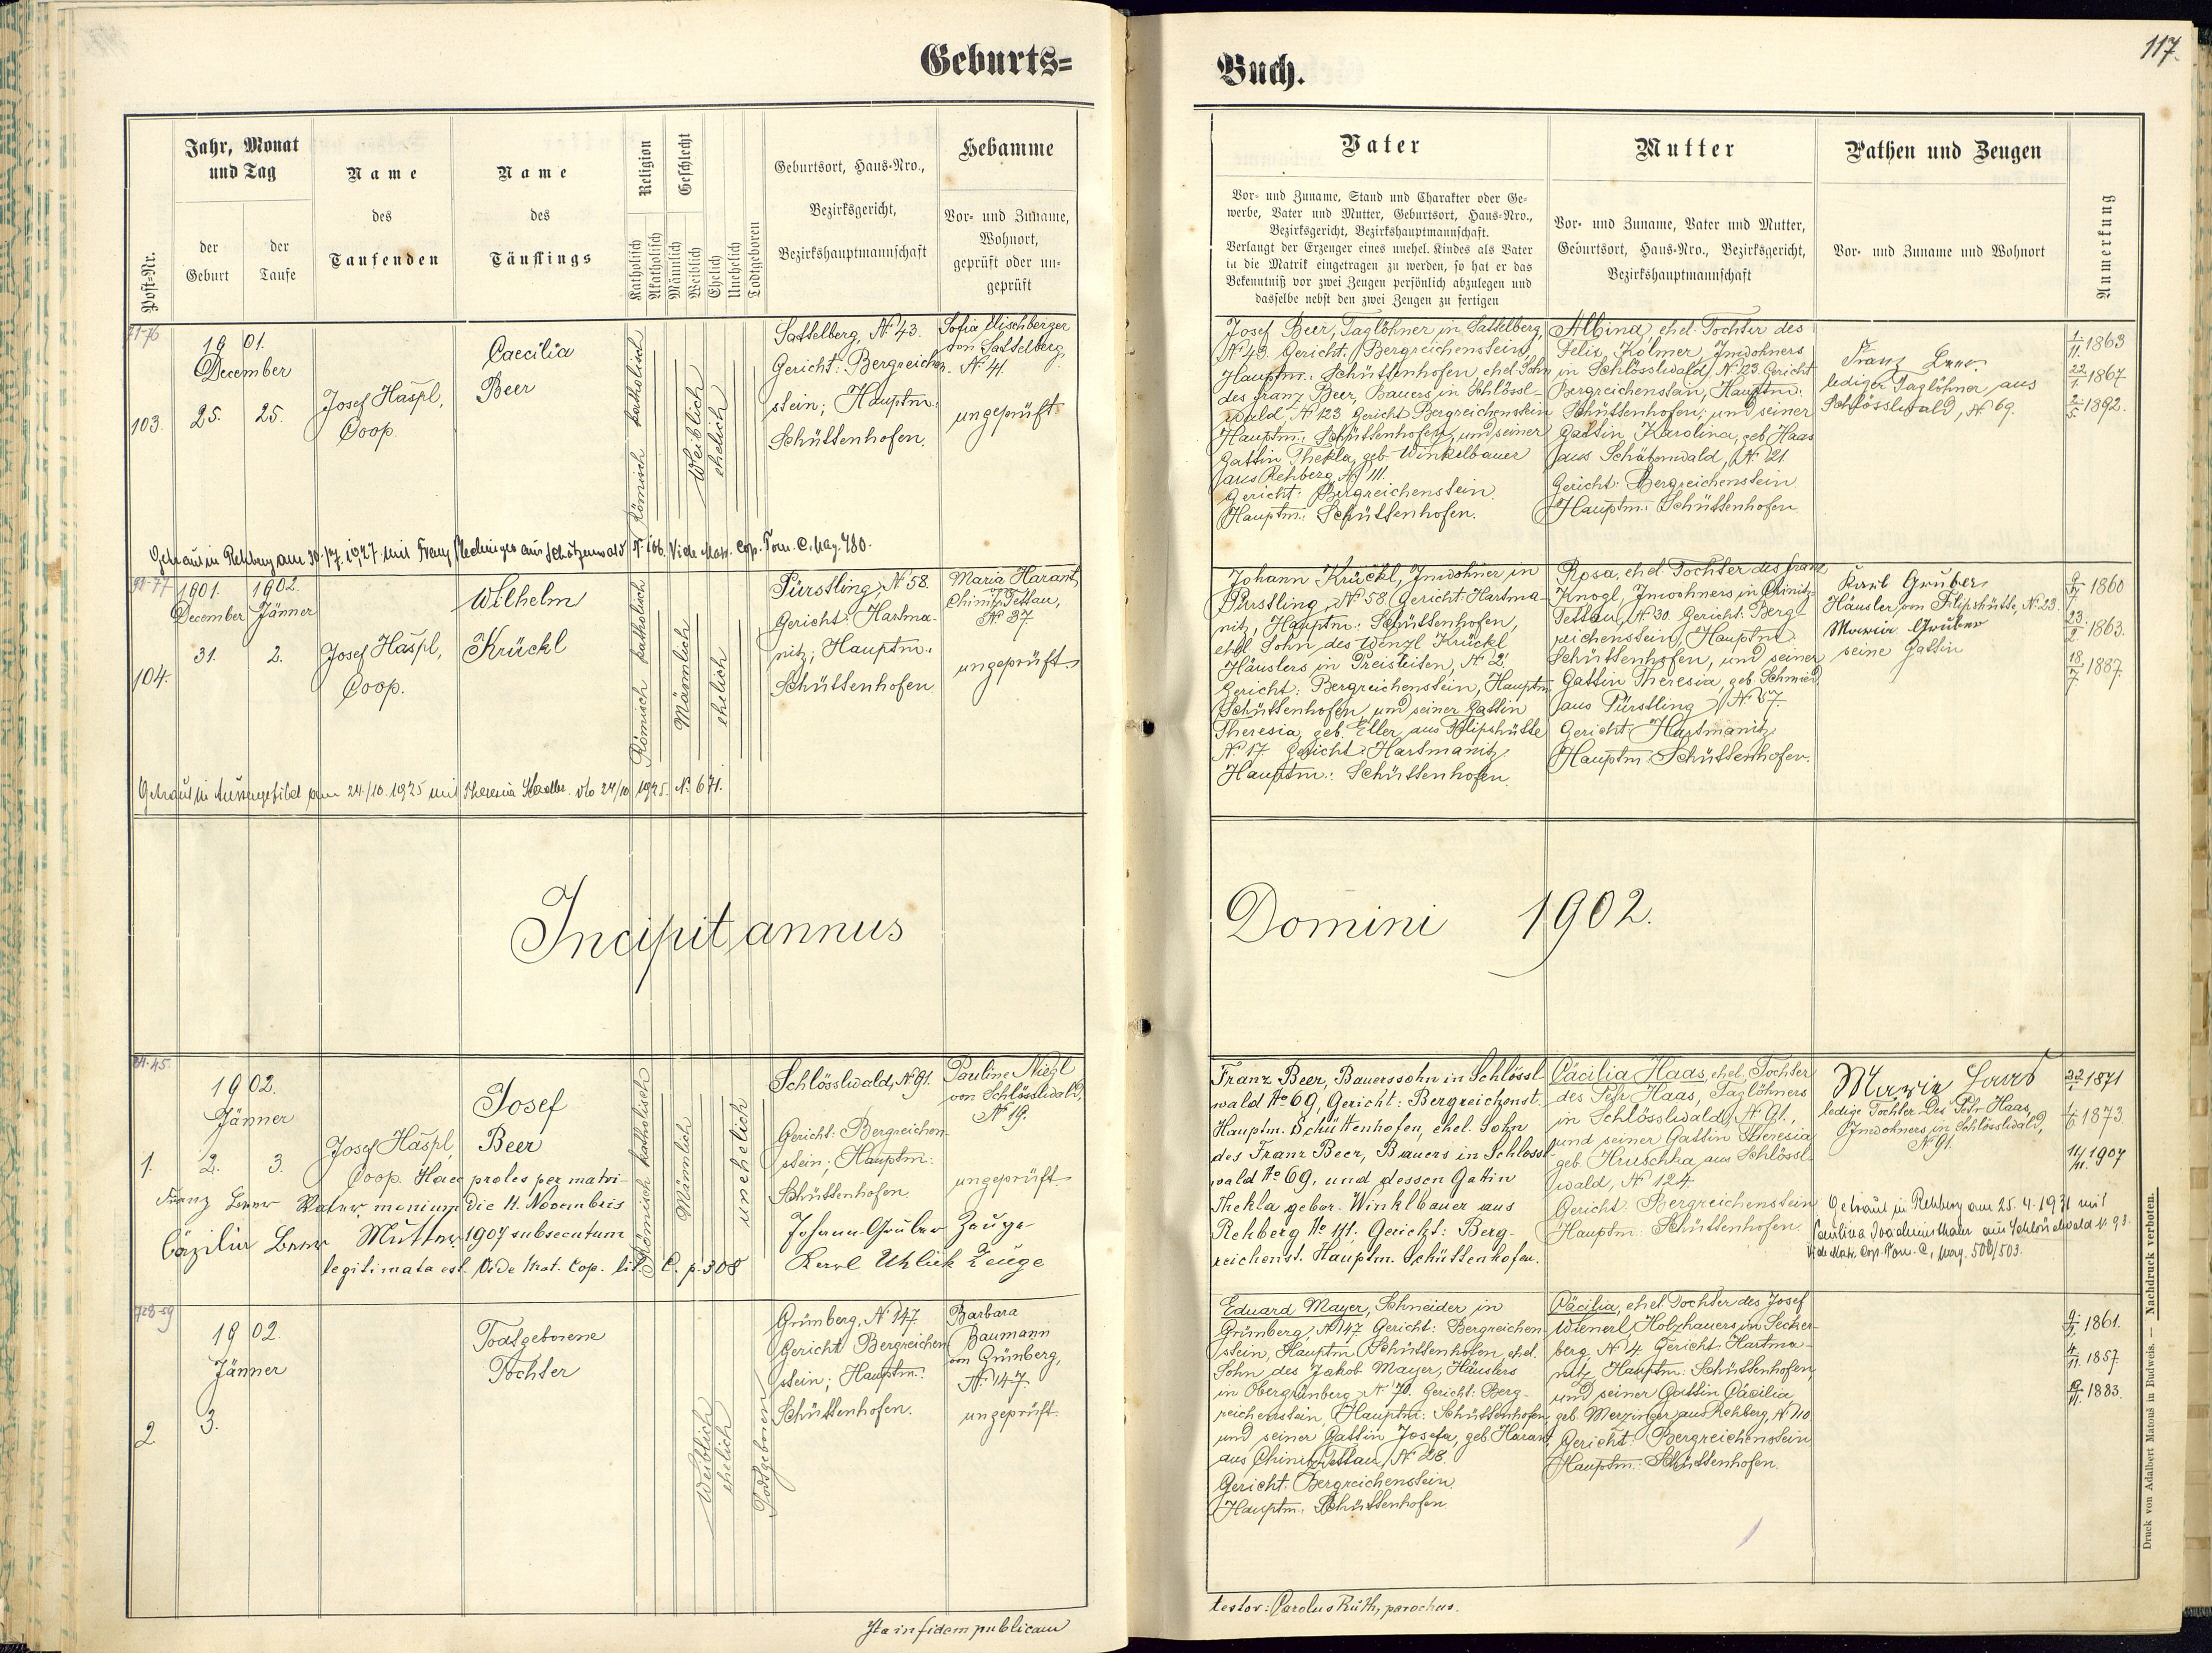 Geburts=
Buch.
117.
Post-Nr.
Jahr, Monat
und Tag
der
Geburt
der
Taufe
Name
des
Taufenden
Name
des
Täuflings
Religion
Katholisch
Akatholisch
Geschlecht
Männlich
Weiblich
Ehelich
Unehelich
Todtgeboren
Geburtsort, Haus-Nro.,
Bezirksgericht,
Bezirkshauptmannschaft
Hebamme
Vor- und Zuname,
Wohnort,
geprüft oder un-
geprüft
Vater
Vor- und Zuname, Stand und Charakter oder Ge-
werbe, Vater und Mutter, Geburtsort, Haus-Nro.,
Bezirksgericht, Bezirkshauptmannschaft.
Verlangt der Erzeuger eines unehel. Kindes als Vater
in die Matrik eingetragen zu werden, so hat er das
Bekenntniß vor zwei Zeugen persönlich abzulegen und
dasselbe nebst den zwei Zeugen zu fertigen
Mutter
Vor- und Zuname, Vater und Mutter,
Geburtsort, Haus-Nro., Bezirksgericht,
Bezirkshauptmannschaft
Pathen und Zeugen
Vor- und Zuname und Wohnort
Anmerkung
103.
1901.
December
25. 25.
Josef Haspl,
Coop.
Caecilia
Beer
Römisch katholisch
Weiblich
ehelich
Sattelberg, No 43.
Gericht: Bergreichen-
stein; Hauptm:
Schüttenhofen.
Sofia Mischberger
von Sattelberg,
No. 41.
ungeprüft
Josef Beer, Taglöhner in Sattelberg,
No 43. Gericht: Bergreichenstein,
Hauptm.: Schüttenhofen ehel. Sohn
des Franz Beer, Bauers in Schlössl-
wald, No 123 Gericht Bergreichenstein
Hauptm.: Schüttenhofen, und seiner
Gattin Thekla, geb. Winkelbauer
aus Rehberg No 111.
Gericht: Bergreichenstein.
Hauptm.: Schüttenhofen.
Albina, ehel. Tochter des
Felix Kölmer, Inwohners
in Schlösslwald, No 23. Gericht
Bergreichenstein, Hauptm:
Schüttenhofen; und seiner
Gattin Karolina, geb. Haas
aus Schätzenwald, No 21
Gericht: Bergreichenstein
Hauptm.: Schüttenhofen
Franz Beer
lediger Taglöhner aus
Schlösslwald, No 69.
1/11 1863
22/1 1867
2/5 1892.
Getraut in Rehberg am 30./7. 1927 mit Franz aus Schätzenwald N. 166. Vide Matr. Cop. Tom. C. pag. 480.
104.
1901. 1902.
December Jänner
31. 2.
Josef Haspl,
Coop.
Wilhelm
Krückl
Römisch katholisch
Männlich
ehelich
Pürstling, No 58.
Gericht: Hartma-
nitz; Hauptm.:
Schüttenhofen
Maria Harant,
Chinitz Tettau,
No 37
ungeprüft
Johann Krückl, Inwohner in
Pürstling, No 58. Gericht: Hartma-
nitz, Hauptm: Schüttenhofen,
ehel. Sohn des Wenzl Krückl
Häuslers in Preisleiten, No 2,
Gericht: Bergreichenstein, Hauptm
Schüttenhofen und seiner Gattin
Theresia, geb. Eller, aus Filipshütte
No 17. Gericht: Hartmanitz
Hauptm.: Schüttenhofen.
Rosa, ehel. Tochter des Franz
Knogl, Inwohners in Chinitz-
Tettau, No 30. Gericht: Berg-
reichenstein, Hauptm
Schüttenhofen, und seiner
Gattin Theresia, geb. Schmied
aus Pürstling, No 57.
Gericht: Hartmanitz
Hauptm: Schüttenhofen.
Karl Gruber,
Häusler von Filipshütte, No 23.
Maria Gruber
seine Gattin
1860
1863.
18/7 1887.
Getraut in Aussergefild am 24/10. 1925 mit Theresia dto 24/10 1925. No 671.
Incipit annus
Domini 1902.
1.
1902.
Jänner
2. 3.
Josef Haspl,
Coop.
Josef
Beer
Römisch katholisch
Männlich
unehelich
Schlösslwald, No 91.
Gericht: Bergreichen-
stein; Hauptm:
Schüttenhofen
Pauline Niegl
von Schlösslwald,
No 19.
ungeprüft
Haec proles per matri-
monium die 11. Novembris
1907 subsecutum
legitimata est. Vide Mat. Cop. lit. C. p. 308
Franz Beer Vater
Cäzilia Beer Mutter
Johann Gruber Zeuge
Karl Uhlick Zeuge
Franz Beer, Bauerssohn in Schlössl-
wald No 69, Gericht: Bergreichenst.
Hauptm. Schüttenhofen, ehel. Sohn
des Franz Beer, Bauers in Schlössl-
wald No 69, und dessen Gattin
Thekla gebor. Winklbauer aus
Rehberg No 111. Gericht: Berg-
reichenst. Hauptm. Schüttenhofen.
Cäcilia Haas, ehel. Tochter
des Petr Haas, Taglöhners
in Schlösslwald, No 91.,
und seiner Gattin Theresia
geb. Hruschka aus Schlössl-
wald, No 124
Gericht: Bergreichenstein
Hauptm: Schüttenhofen
Marie Haas
ledige Tochter des Petr Haas,
Inwohners in Schlösslwald,
No 91.
1871
1873
11/11. 1907
Getraut in Rehberg am 25. 4. 1931 mit
Paulina Joachimsthaler aus Schlösslwald N. 93.
Vide Matr. Cop. Tom. C, pag. 500/503.
2.
1902.
Jänner
3.
Todtgeborene
Tochter
Weiblich
ehelich
Todtgeboren
Grünberg, No 147
Gericht Bergreichen
stein; Hauptm:
Schüttenhofen.
Barbara
Baumann
von Grünberg,
No. 147.
ungeprüft
Eduard Mayer, Schneider in
Grünberg, No 147 Gericht: Bergreichen-
stein, Hauptm Schüttenhofen, ehel.
Sohn des Jakob Mayer, Häuslers
in Obergrünberg No 70. Gericht: Berg-
reichenstein, Hauptm: Schüttenhofen
und seiner Gattin Josefa, geb. Harant,
aus Chinitz Tettau, No 28.
Gericht: Bergreichenstein
Hauptm: Schüttenhofen
Cäcilia, ehel. Tochter des Josef
Wienerl, Holzhauers in Secker-
berg No 4. Gericht: Hartma-
nitz Hauptm: Schüttenhofen,
und seiner Gattin Cäcilia
geb. Merzinger aus Rehberg, No 110
Gericht: Bergreichenstein
Hauptm: Schüttenhofen.
1861.
4/11. 1857.
1883.
Ita in fidem publicam
testor: Carolus Rüth, parochus.
Druck von Adalbert Matouš in Budweis. — Nachdruck verboten.